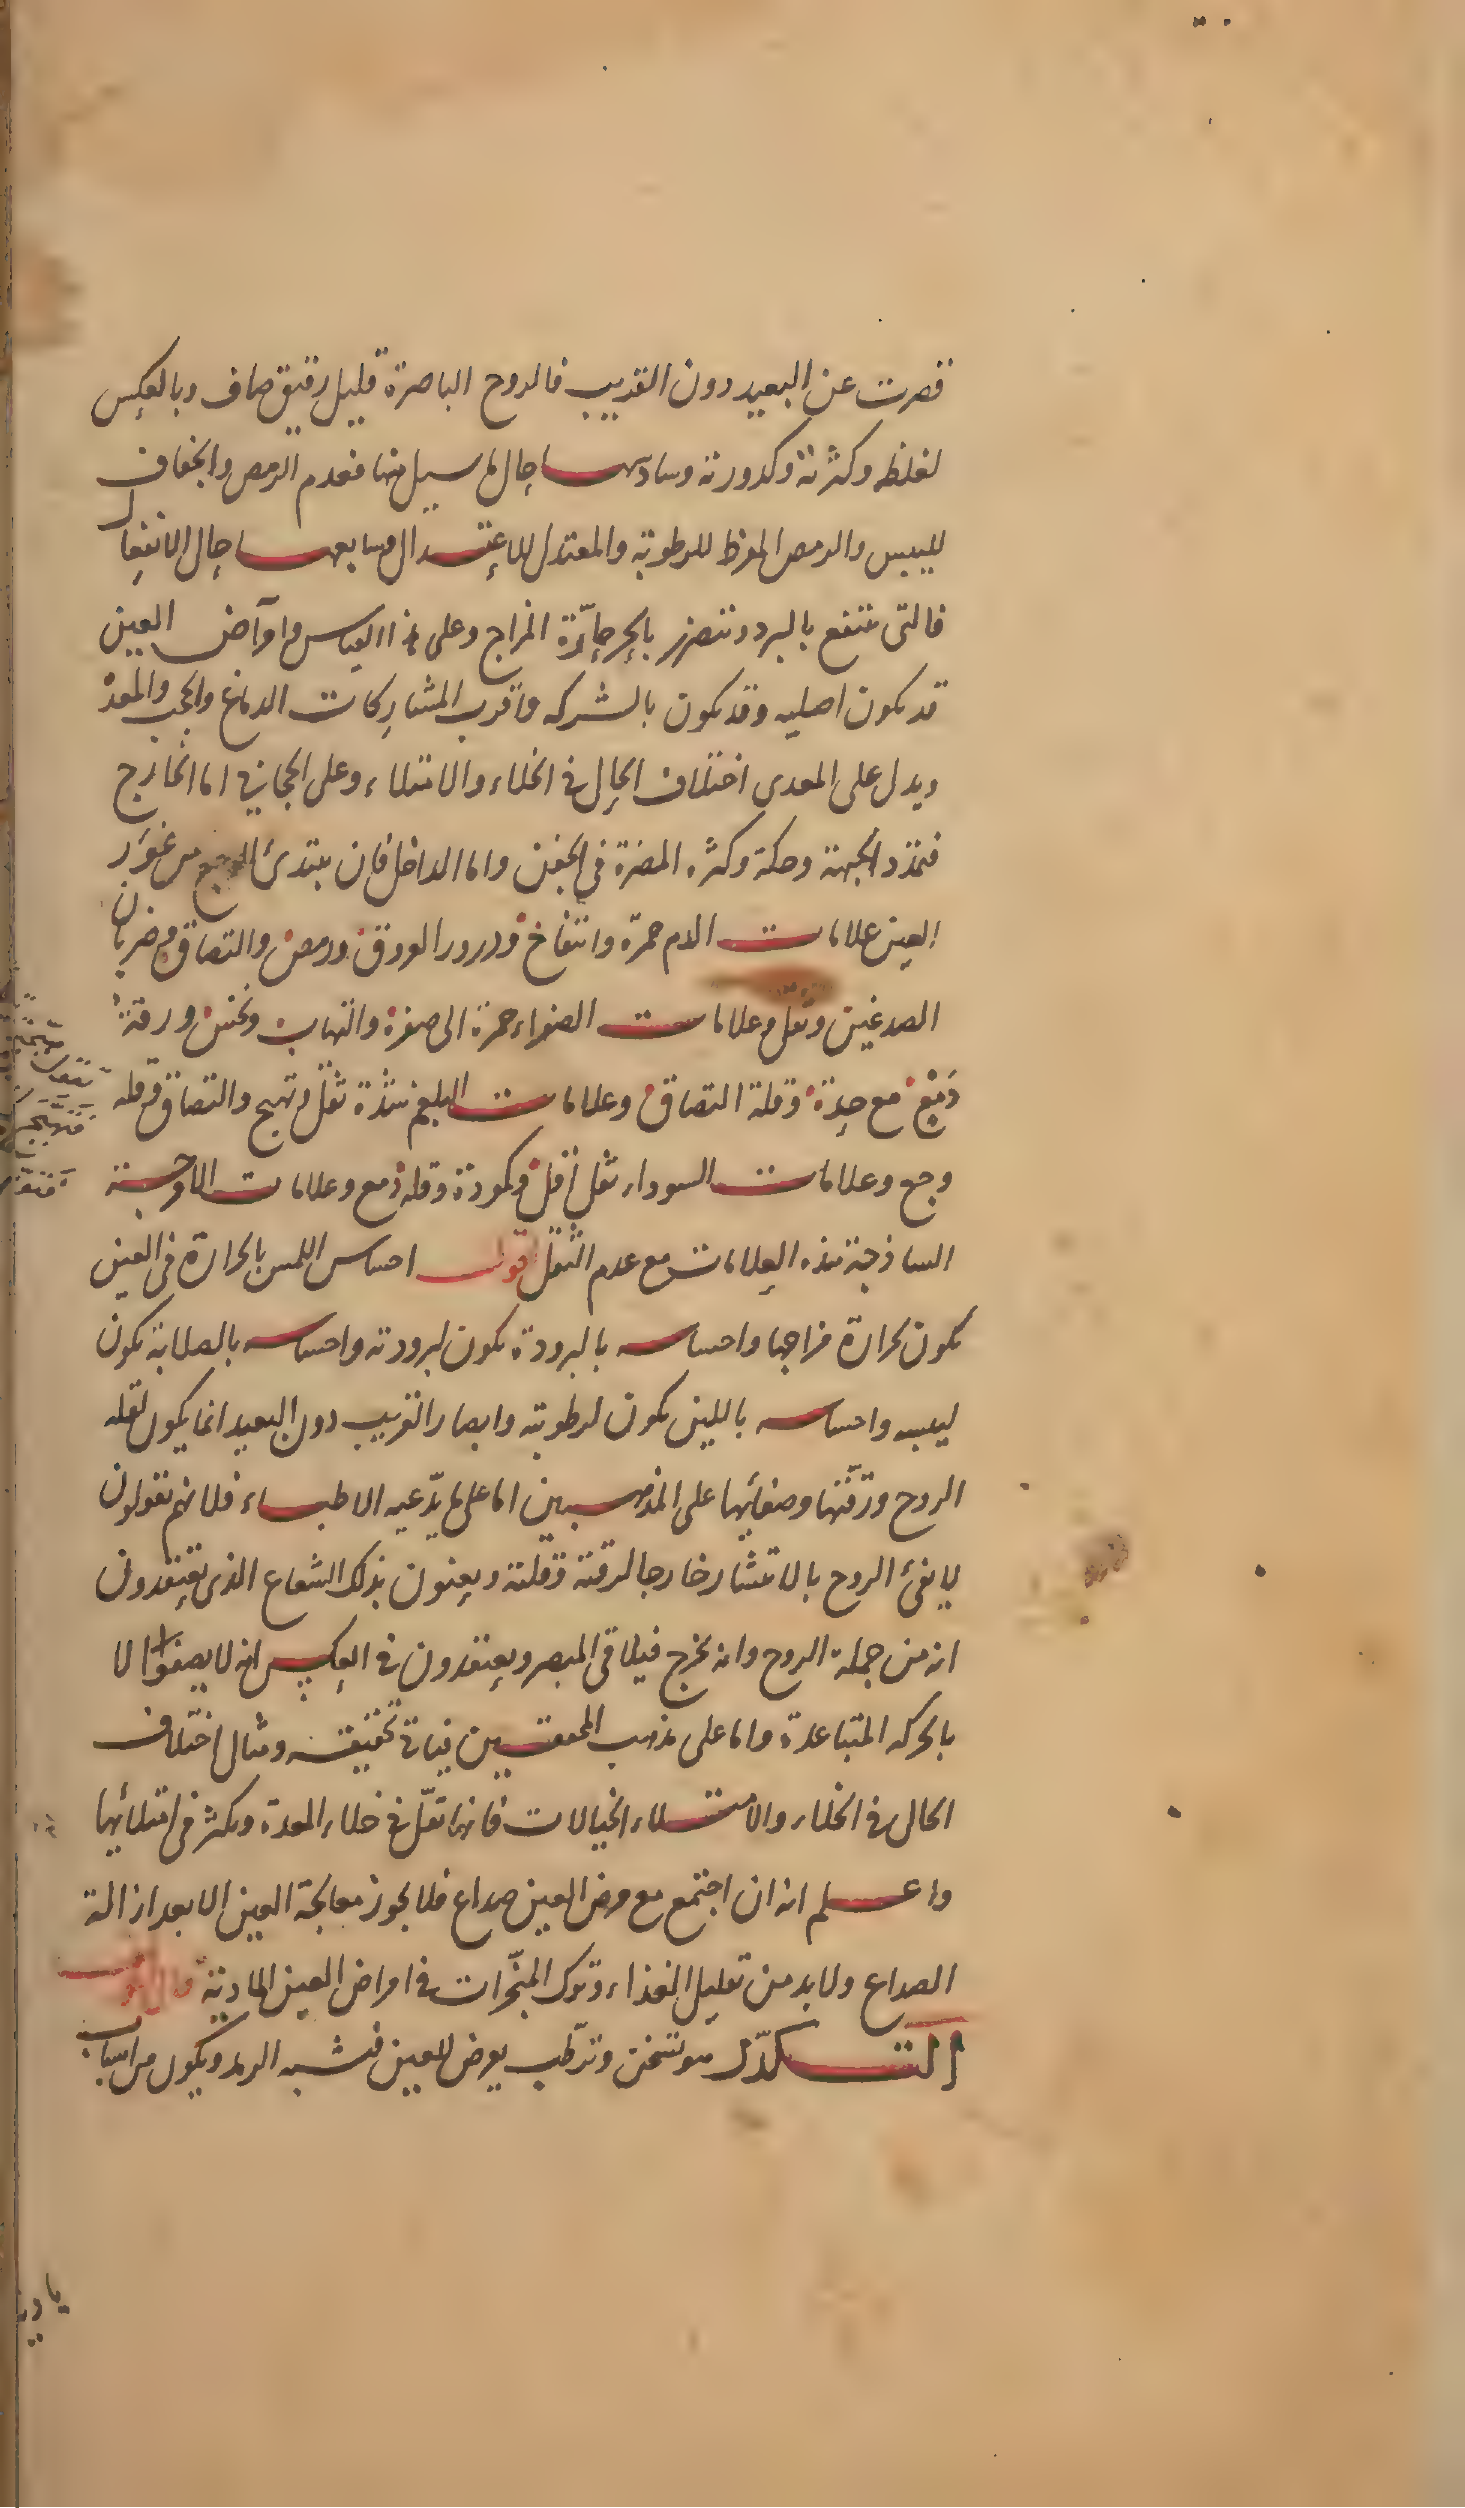 قصرت عن البعيد دون القريب فالروح الباصرة قليل رقيق صاف وبالعكس
لغلظه وكثرته وكدورته وسادسها حال ما يسيل منها فعدم الرمص والجفاف
لليبس والرمص المفرط للرطوبة والمعتدل للاعتدال وسابعها حال الانفعال
فالتى تنتفع بالبرد وتتضرر بالحر حارّة المزاج وعلى هذا القياس وامراض العين
قد يكون اصليه وقد يكون بالشركه واقرب المشاركات الدماغ والحجب والمعدة
ويدل على المعدى اختلاف الحال فى الخلاء والامتلاء وعلى الحجابى اما الخارج
فتمدد الجبهة وحكة وكثره المضرة فى الجفن واما الداخل فان يبتدئ الوجع من غور
العين علامات الدم حمرة وانتفاخ ودرور العروق ورمص والتصاق وضربان
الصدغين وثقل وعلامات الصفراء حمرة الى صفرة والتهاب ونخس ورقة
دَمْعٍ مع حدة وقلة التصاق وعلامات البلغم شدة ثقل وتهيج والتصاق وقله
وجع وعلامات السوداء ثقل اقل وكمودة وقله دمع وعلامات الامزجة
الساذجة هذه العلامات مع عدم الثقل قوله احساس اللمس بالحرارة فى العين
يكون لحرارة مزاجها واحساسه بالبرودة يكون لبرودته واحساسه بالصلابة يكون
ليبسه واحساسه باللين يكون لرطوبته وابصار القريب دون البعيد انما يكون لقله
الروح ورقّتها وصفائها على المذهبين اما على ما يدّعيه الاطباء فلانهم يقولون
لا يفئ الروح بالانتشار خارجا لرقته وقلته ويعنون بذلك الشعاع الذى يعتقدون
انه من جملة الروح وانه يخرج فيلاقى المبصر ويعتقدون فى العكس انه لا يصفو الا
بالحركه المتباعدة واما على مذهب المحققين فياتى تحقيقه ومثال اختلاف
الحال فى الخلاء والامتلاء الخيالات فانها تقلّ فى خلاء المعدة ويكثر فى امتلائها
واعلم انه ان اجتمع مع مرض العين صداع فلا يجوز معالجة العين الا بعد ازالة
الصداع ولابد من تقليل الغذاء وترك المبخّرات فى امراض العين المادية
التكدّر هو تسخن وترطب يعرض للعين فتشبه الرمد ويكون من اسباب